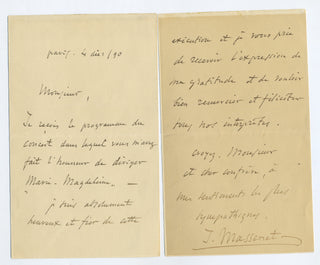 paris. 4 déc/90
Monsieur,
Je reçois le programme du
concert dans lequel vous m'avez
fait l'honneur de diriger
"Marie-Magdeleine". —
je suis absolument
heureux et fier de cette
exécution et je vous prie
de recevoir l'expression de
ma gratitude et de vouloir
bien remercier et féliciter
tous nos interprètes.
croyez, Monsieur
et cher confrère, à
mes sentiments les plus
sympathiques
J. Massenet